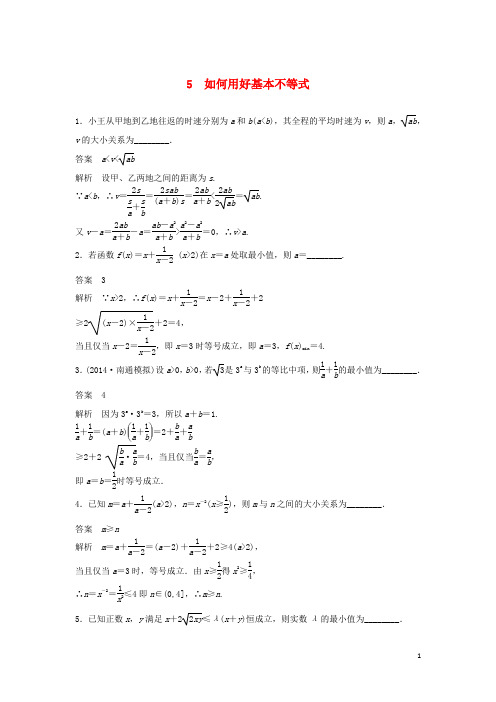 5 如何用好基本不等式
1.小王从甲地到乙地往返的时速分别为a和b(a<b),其全程的平均时速为v,则a,√ab,
v的大小关系为________.
答案 a<v<√ab
解析 设甲、乙两地之间的距离为s.
∵a<b,∴v=2s/(s/a+s/b)=2sab/((a+b)s)=2ab/(a+b)<2ab/(2√ab)=√ab.
又v-a=2ab/(a+b)-a=(ab-a²)/(a+b)>(a²-a²)/(a+b)=0,∴v>a.
2.若函数f(x)=x+1/(x-2) (x>2)在x=a处取最小值,则a=________.
答案 3
解析 ∵x>2,∴f(x)=x+1/(x-2)=x-2+1/(x-2)+2
≥2√((x-2)×1/(x-2))+2=4,
当且仅当x-2=1/(x-2),即x=3时等号成立,即a=3,f(x)min=4.
3.(2014·南通模拟)设a>0,b>0,若√3是3ᵃ与3ᵇ的等比中项,则1/a+1/b的最小值为________.
答案 4
解析 因为3ᵃ·3ᵇ=3,所以a+b=1.
1/a+1/b=(a+b)(1/a+1/b)=2+b/a+a/b
≥2+2√(b/a·a/b)=4,当且仅当b/a=a/b,
即a=b=1/2时等号成立.
4.已知m=a+1/(a-2)(a>2),n=x⁻²(x≥1/2),则m与n之间的大小关系为________.
答案 m≥n
解析 m=a+1/(a-2)=(a-2)+1/(a-2)+2≥4(a>2),
当且仅当a=3时,等号成立.由x≥1/2得x²≥1/4,
∴n=x⁻²=1/x²≤4即n∈(0,4],∴m≥n.
5.已知正数x,y满足x+2√2xy≤λ(x+y)恒成立,则实数λ的最小值为________.
1